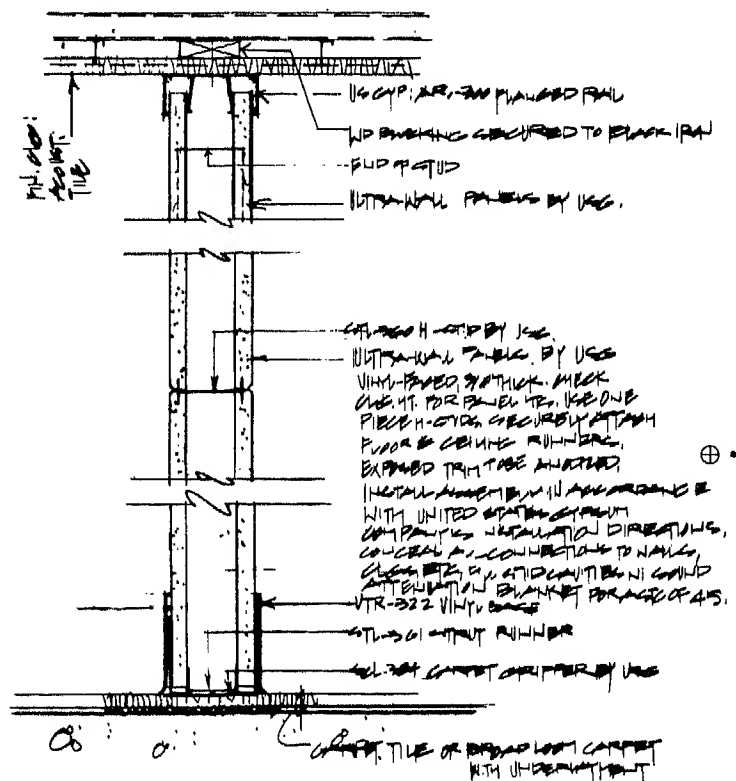 FIN. CLG:
ACOUST.
TILE
FLANGED RAIL
WD BLOCKING SECURED TO BLACK IRON
END OF STUD
ULTRAWALL PANELS BY USG.
H-STUD BY USG.
ULTRAWALL PANELS. BY USG
VINYL-FACED, THICK. CHECK
CLG. HT. FOR PANEL HTS. USE ONE
PIECE H-STUDS. SECURELY ATTACH
FLOOR & CEILING RUNNERS.
EXPOSED TRIM TO BE ANODIZED.
INSTALL ASSEMBLY IN ACCORDANCE
WITH UNITED STATES GYPSUM
COMPANY'S INSTALLATION DIRECTIONS.
CONCEAL CONNECTIONS TO WALLS,
CLGS. ETC. STUD CAVITIES SOUND
ATTENUATION BLANKET FOR A STC OF 45.
VTR-322 VINYL BASE
STRUT RUNNER
CARPET GRIPPER BY USG
CARPET TILE OR BROADLOOM CARPET
WITH UNDERLAYMENT